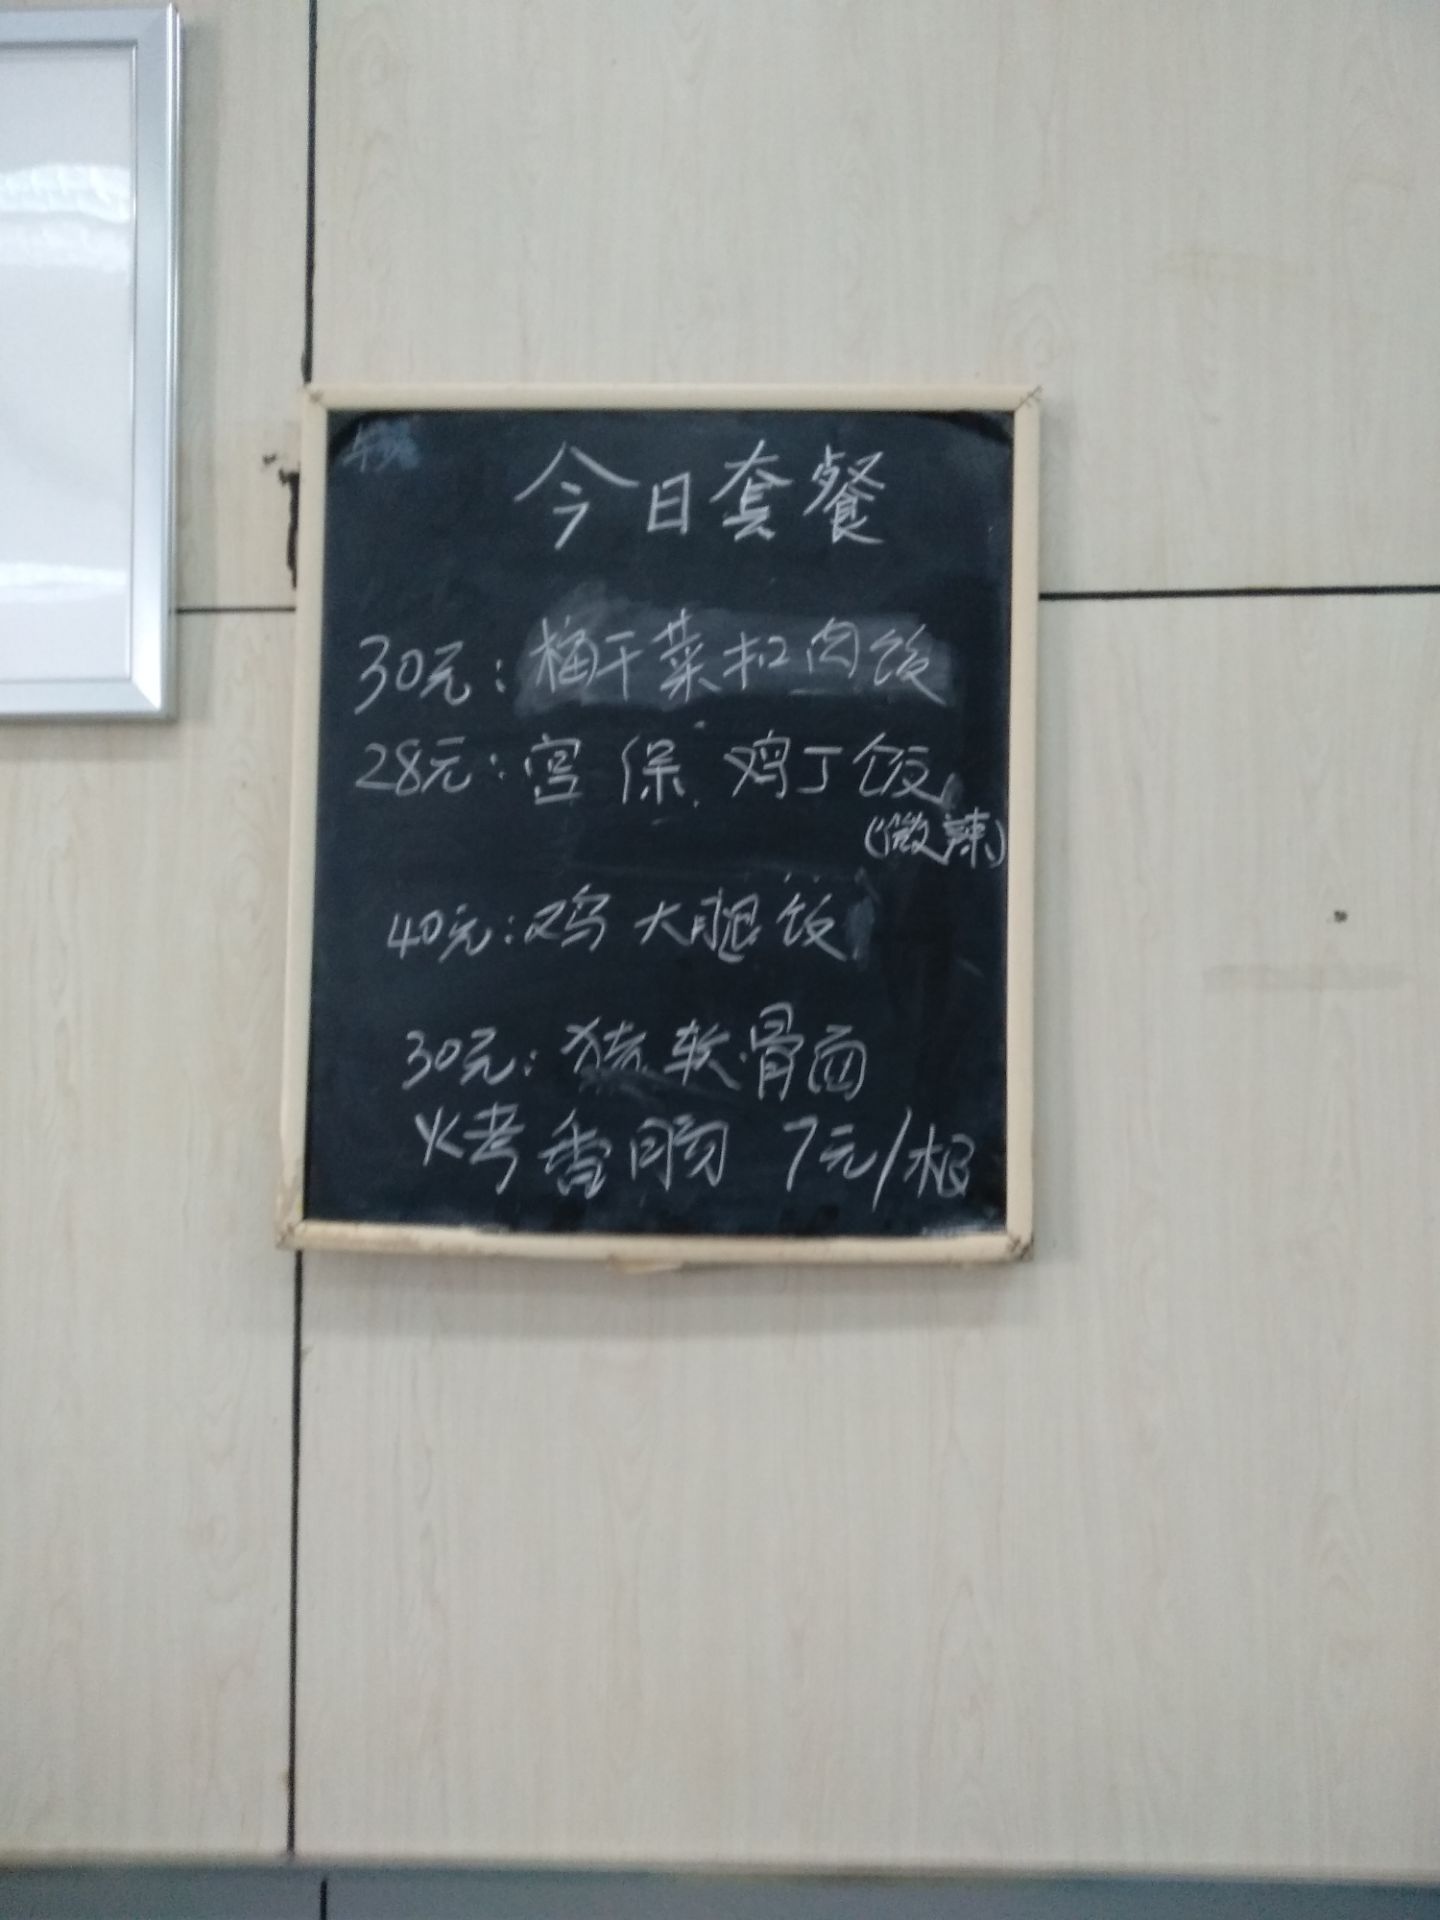 今日套餐
30元:梅干菜扣肉饭
28元:宫保鸡丁饭
(微辣)
40元:鸡大腿饭
30元:猪软骨面
烤香肠 7元/根